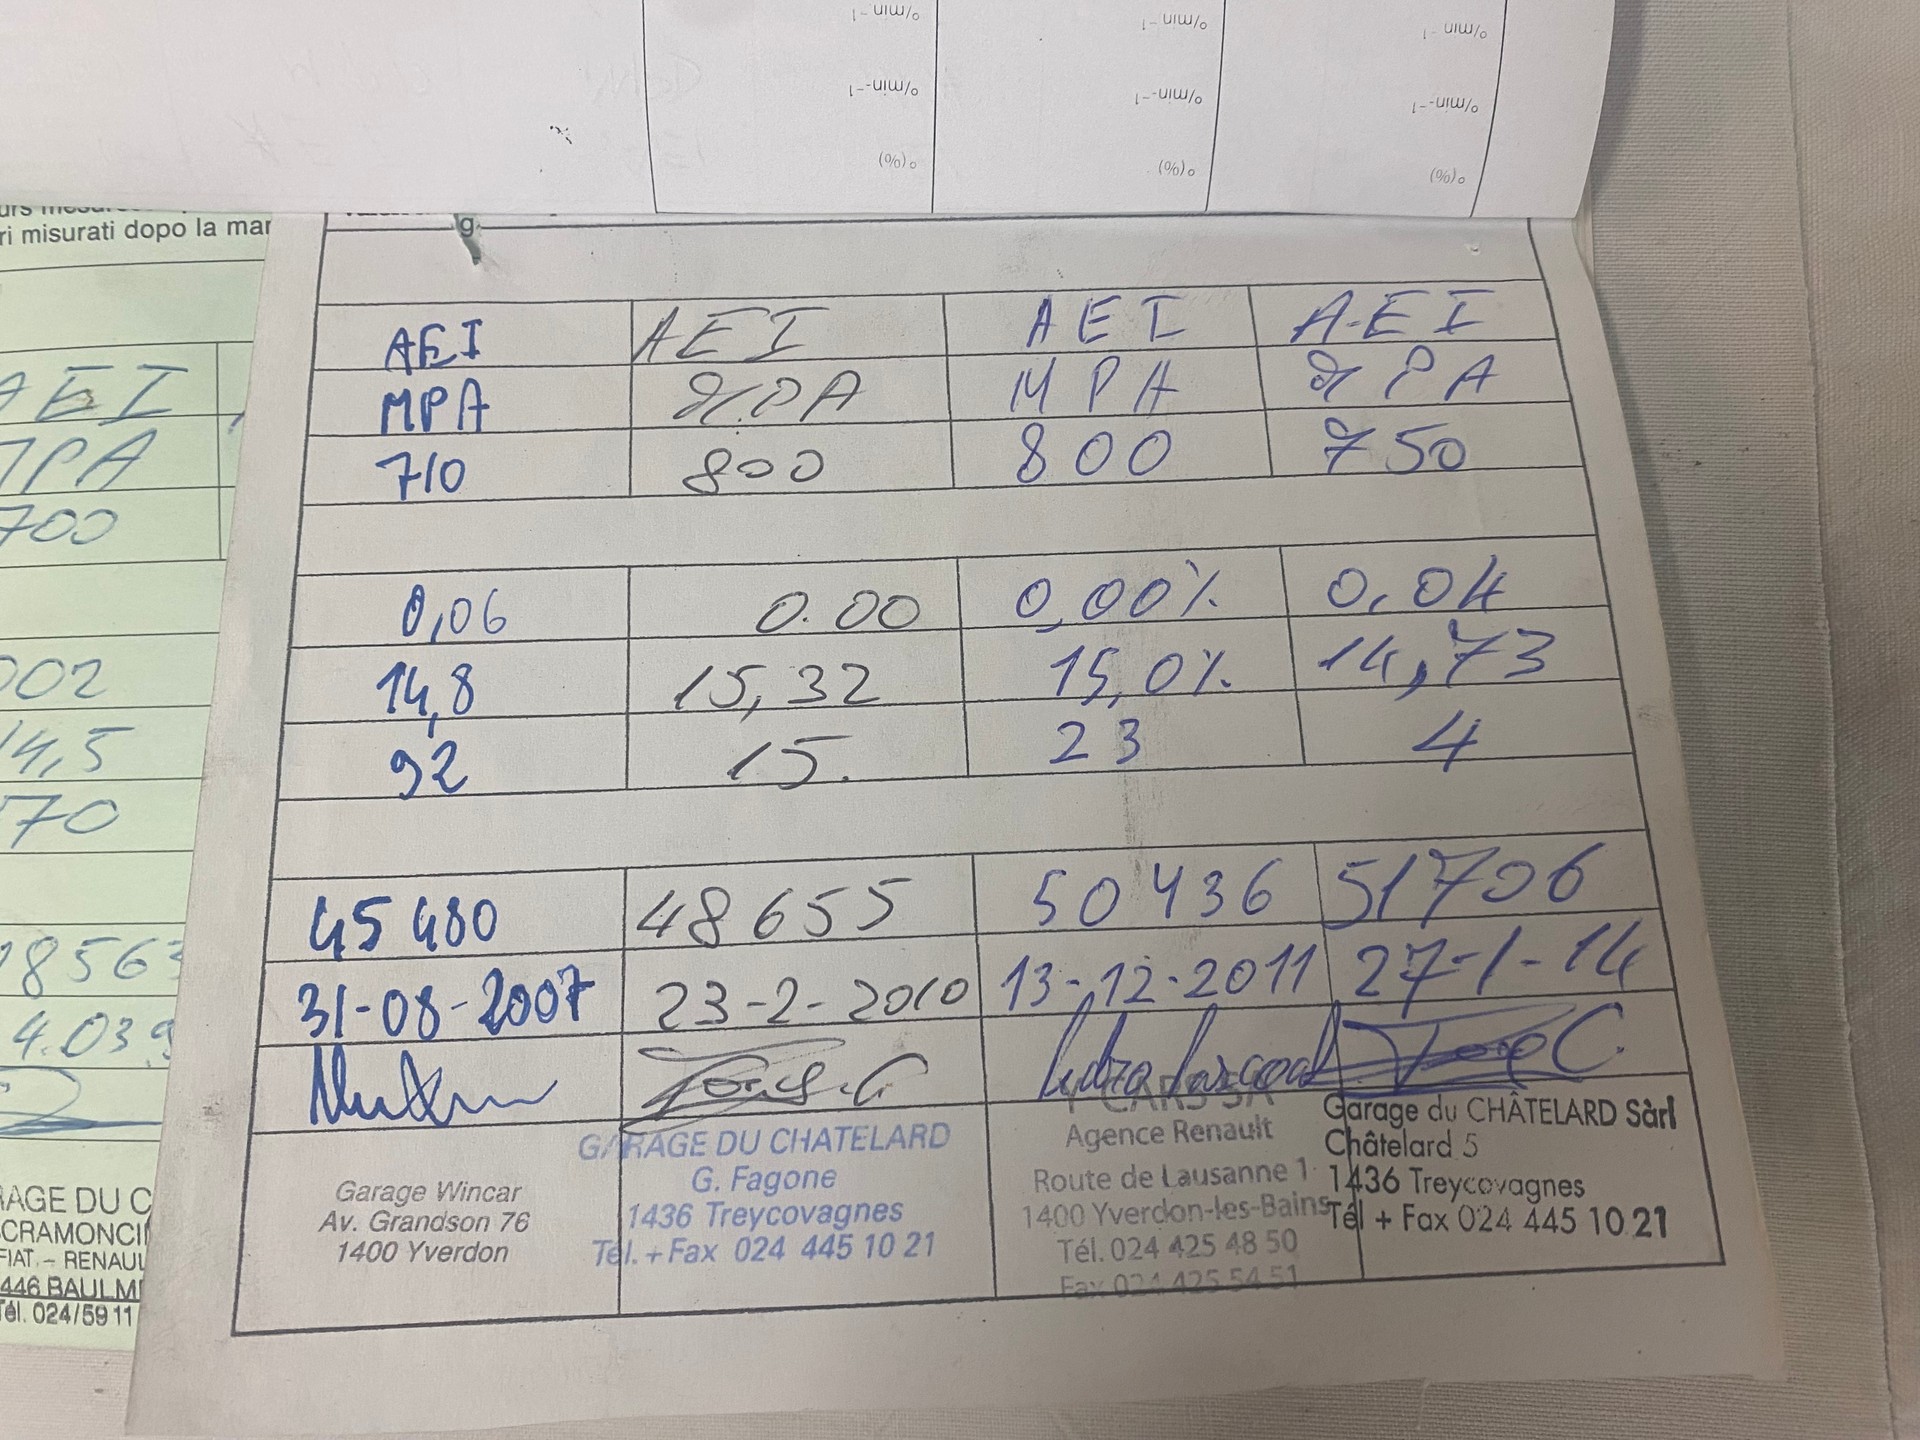 º/min⁻¹ º/min⁻¹ º/min⁻¹
º/min⁻¹ º/min⁻¹ º/min⁻¹
º(%) º(%) º(%)
ri misurati dopo la mar
AEI AEI AEI A-EI
MPA MPA MPA MPA
710 800 800 750
0,06 0.00 0,00% 0,04
14,8 15,32 15,0% 14,73
92 15. 23 4
45 480 48655 50436 51706
31-08-2007 23-2-2010 13-12-2011 27-1-14
Garage Wincar
Av. Grandson 76
1400 Yverdon
GARAGE DU CHATELARD
G. Fagone
1436 Treycovagnes
Tél. + Fax 024 445 10 21
CARS SA
Agence Renault
Route de Lausanne 1
1400 Yverdon-les-Bains
Tél. 024 425 48 50
Fax 024 425 54 51
Garage du CHÂTELARD Sàrl
Châtelard 5
1436 Treycovagnes
Tél + Fax 024 445 10 21
AEI
MPA
700
002
14,5
70
18563
4.03.9
RAGE DU C
CRAMONCI
FIAT – RENAUL
446 BAULM
Tél. 024/59 11